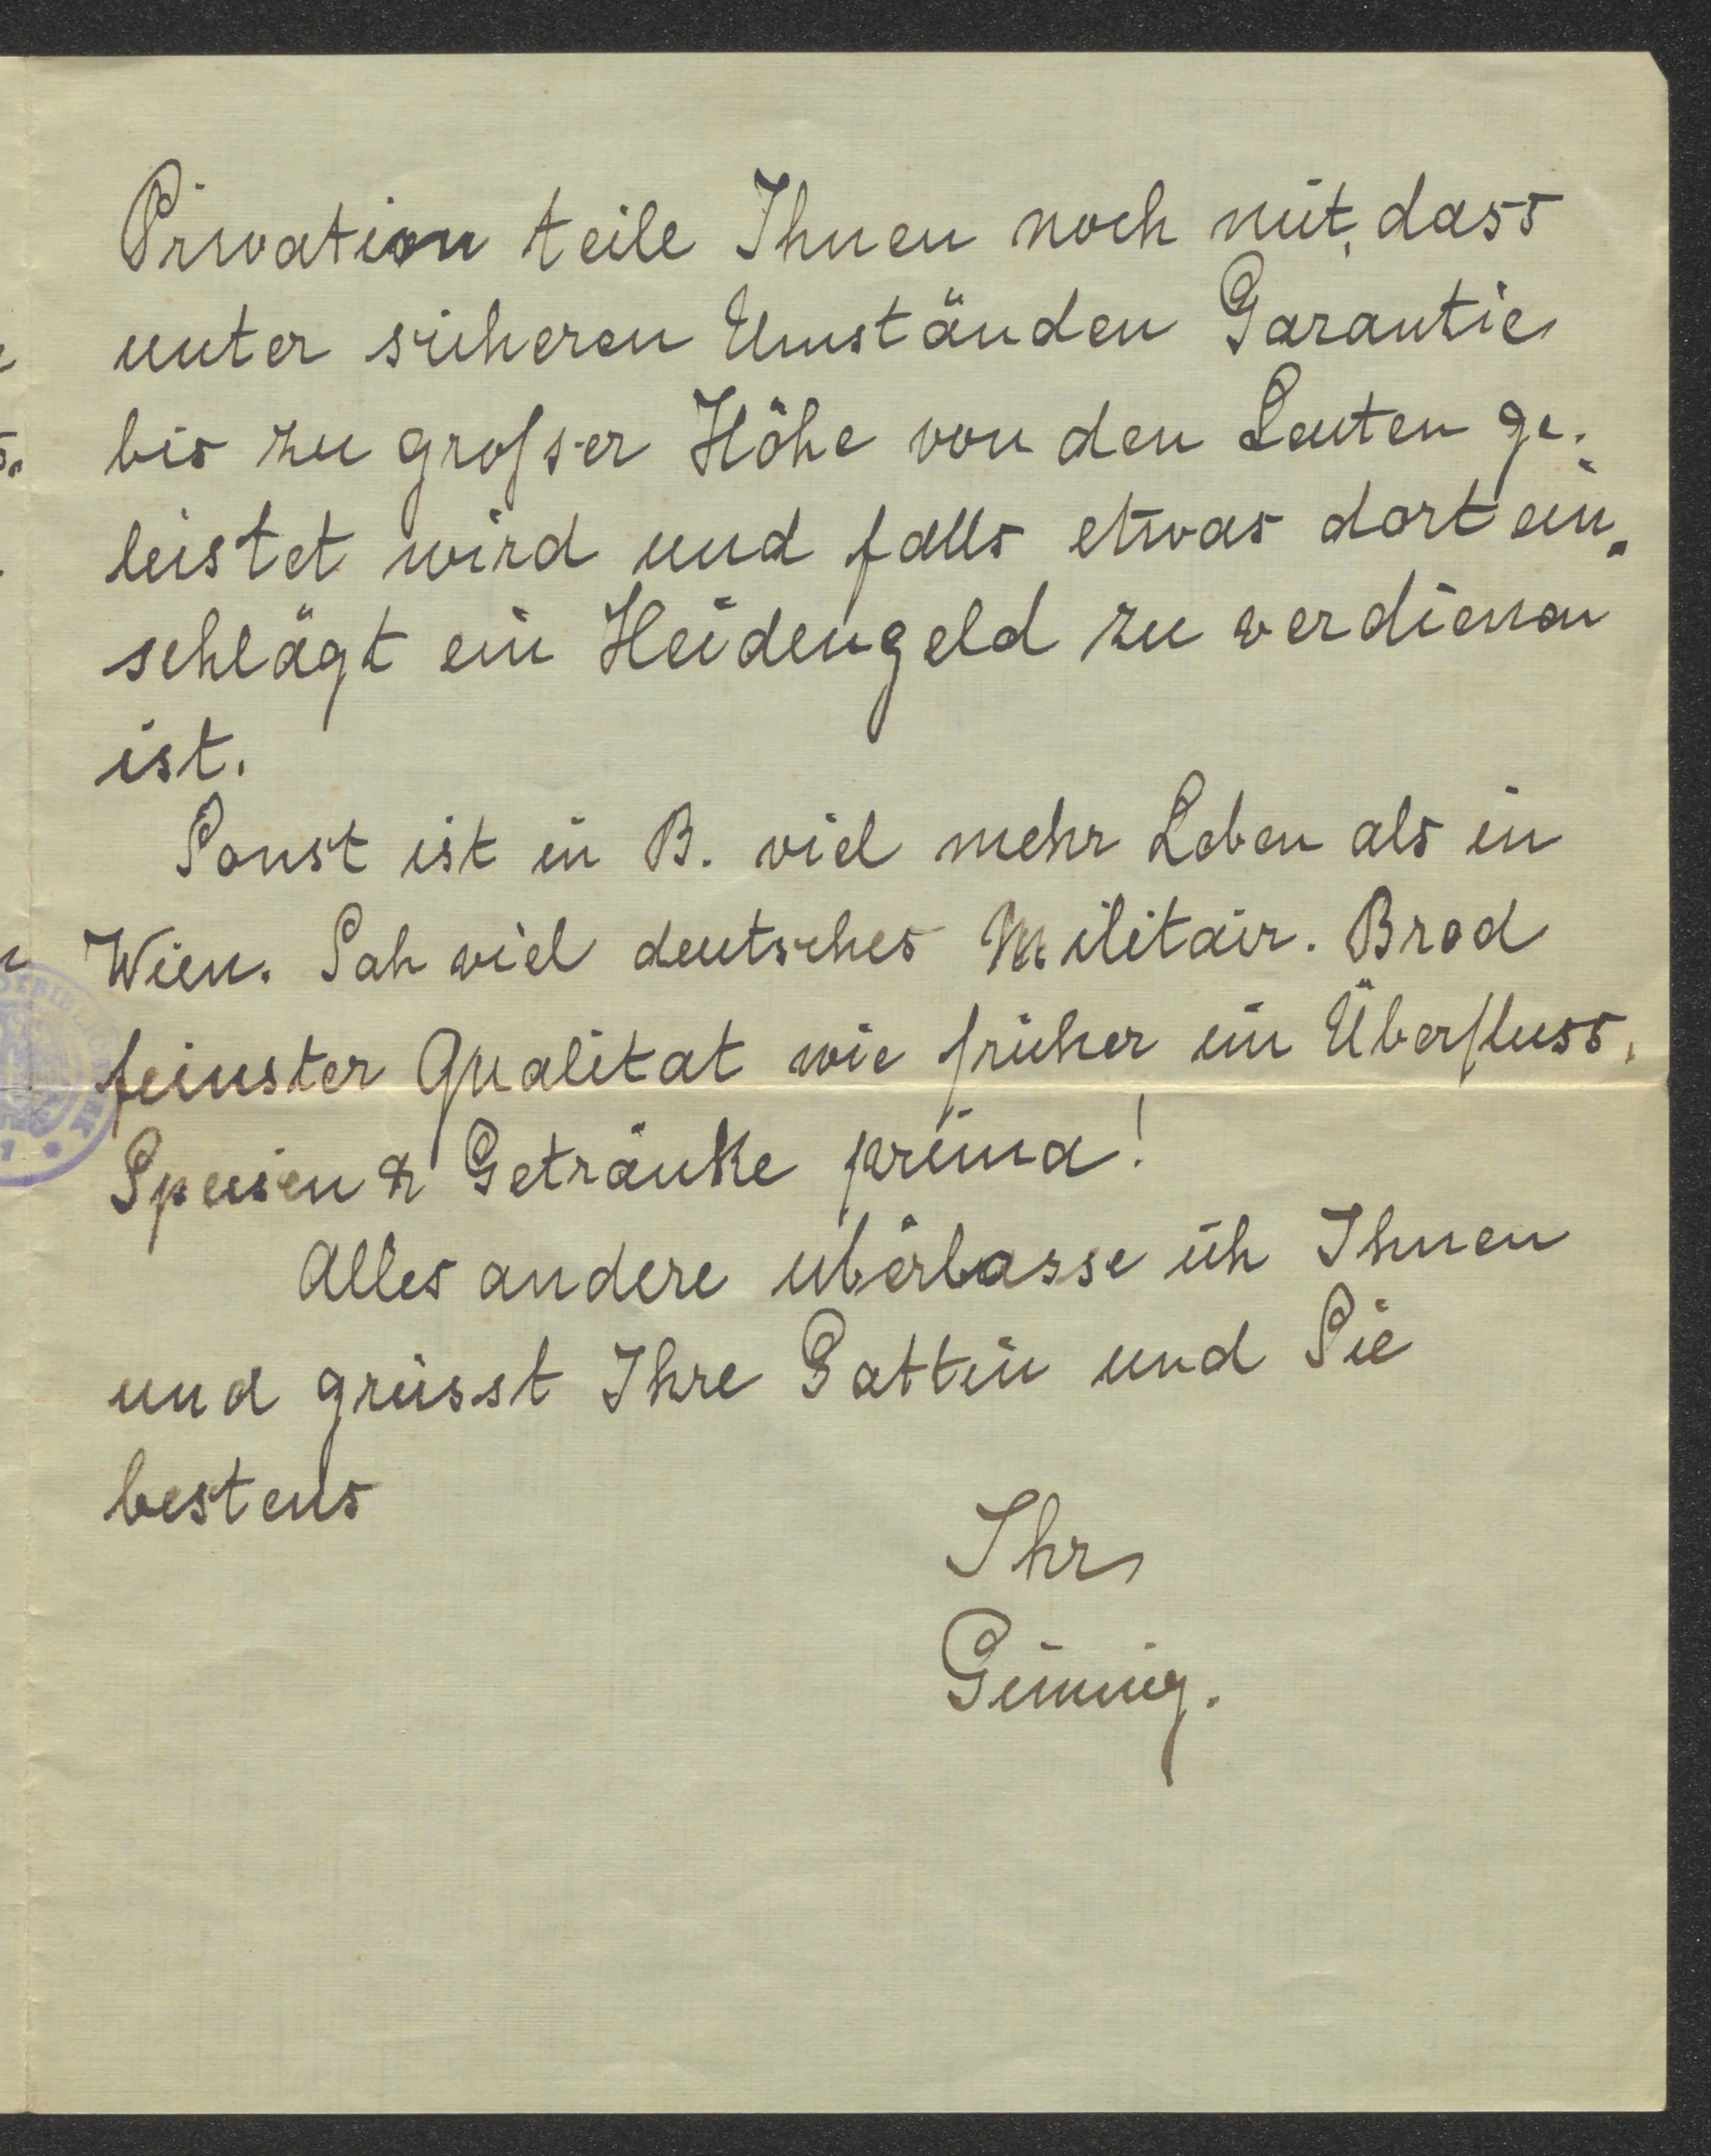 Privatim teile Ihnen noch mit, dass
unter sicheren Umständen Garantie
bis zu grosser Höhe von den Leuten ge-
leistet wird und falls etwas dort ein-
schlägt ein Heidengeld zu verdienen
ist.
Sonst ist in B. viel mehr Leben als in
Wien. Sah viel deutsches Militair. Brod
feinster Qualitat wie früher im Überfluss.
Speisen & Getränke prima!
Alles andere überlasse ich Ihnen
und grüsst Ihre Gattin und Sie
bestens
Ihr